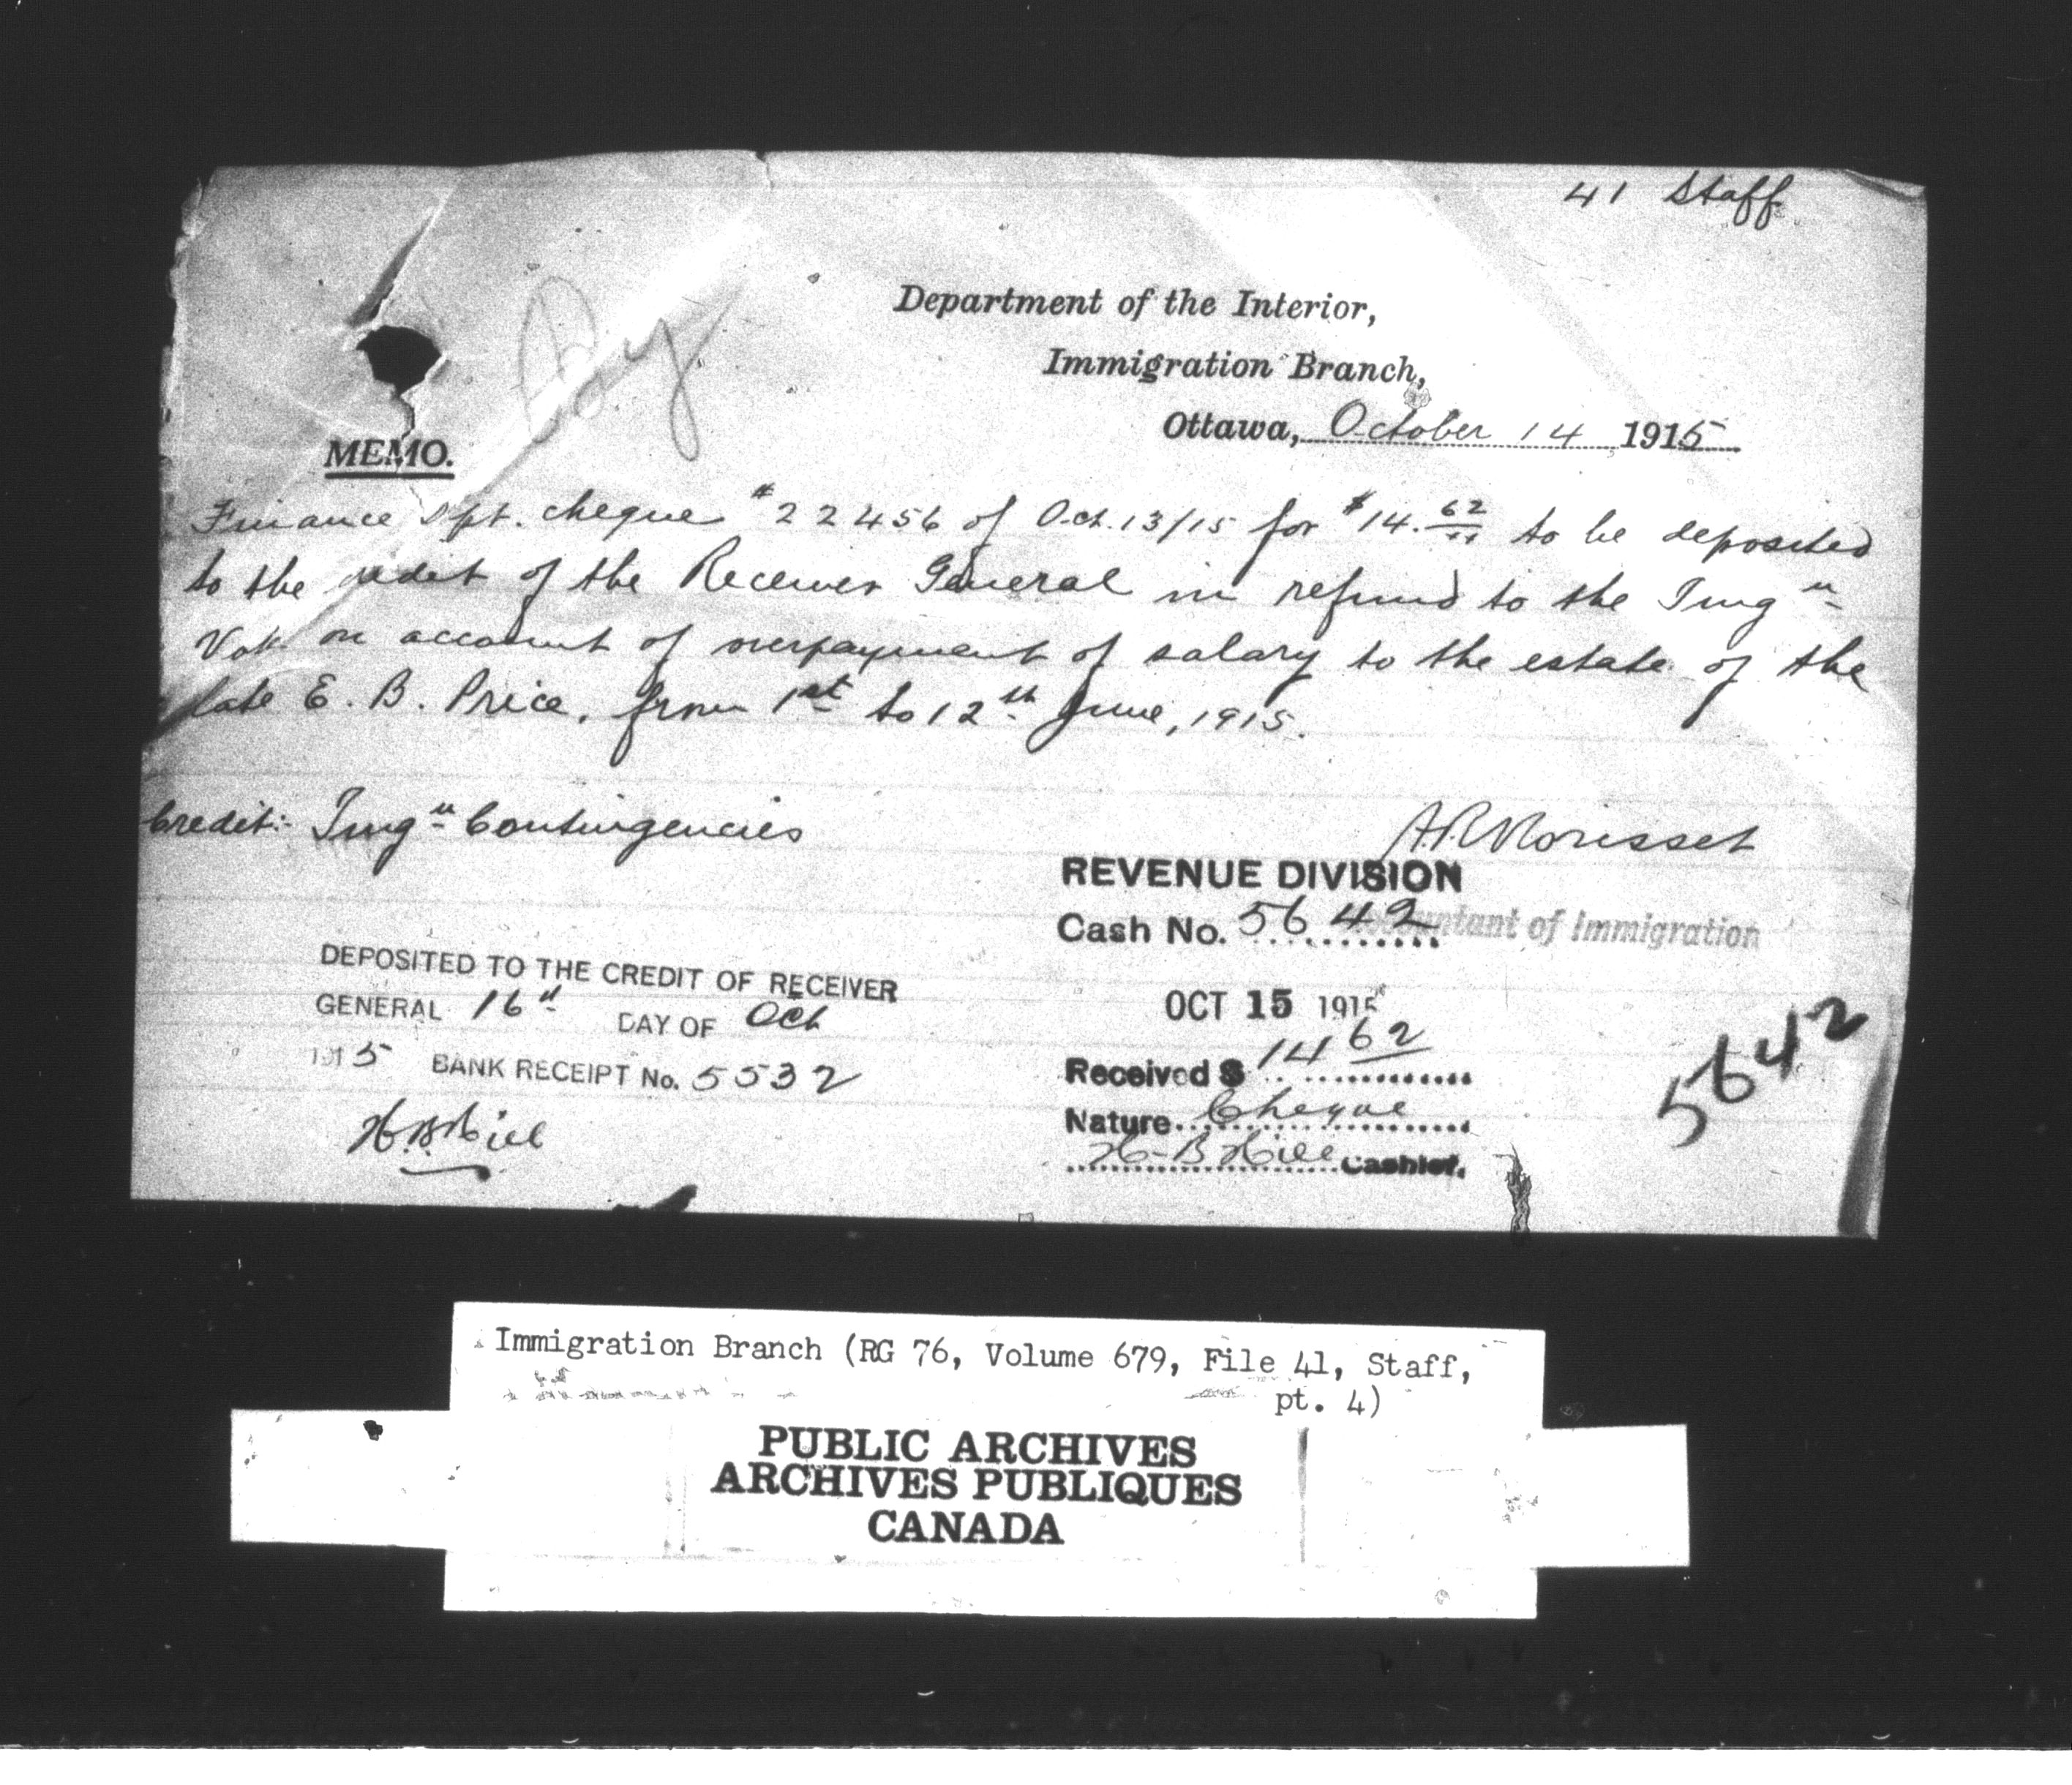 41 Staff
Department of the Interior,
Immigration Branch,
Ottawa, October 14 1915
MEMO.
Finance Dpt. cheque #22456 of Oct. 13/15 for $14.62 to be deposited
to the credit of the Receiver General in refund to the Imgn
Vote on account of overpayment of salary to the estate of the
late E. B. Price, from 1st to 12th June, 1915.
Credit:- Imgn Contingencies
A.R. Morisset
Accountant of Immigration
REVENUE DIVISION
Cash No. 5642
OCT 15 1915
Received $ 14 62
Nature Cheque
H-B Hill Cashier.
DEPOSITED TO THE CREDIT OF RECEIVER
GENERAL 16th DAY OF Oct
1915 BANK RECEIPT No. 5532
H.B. Hill
5642
Immigration Branch (RG 76, Volume 679, File 41, Staff,
pt. 4)
PUBLIC ARCHIVES
ARCHIVES PUBLIQUES
CANADA